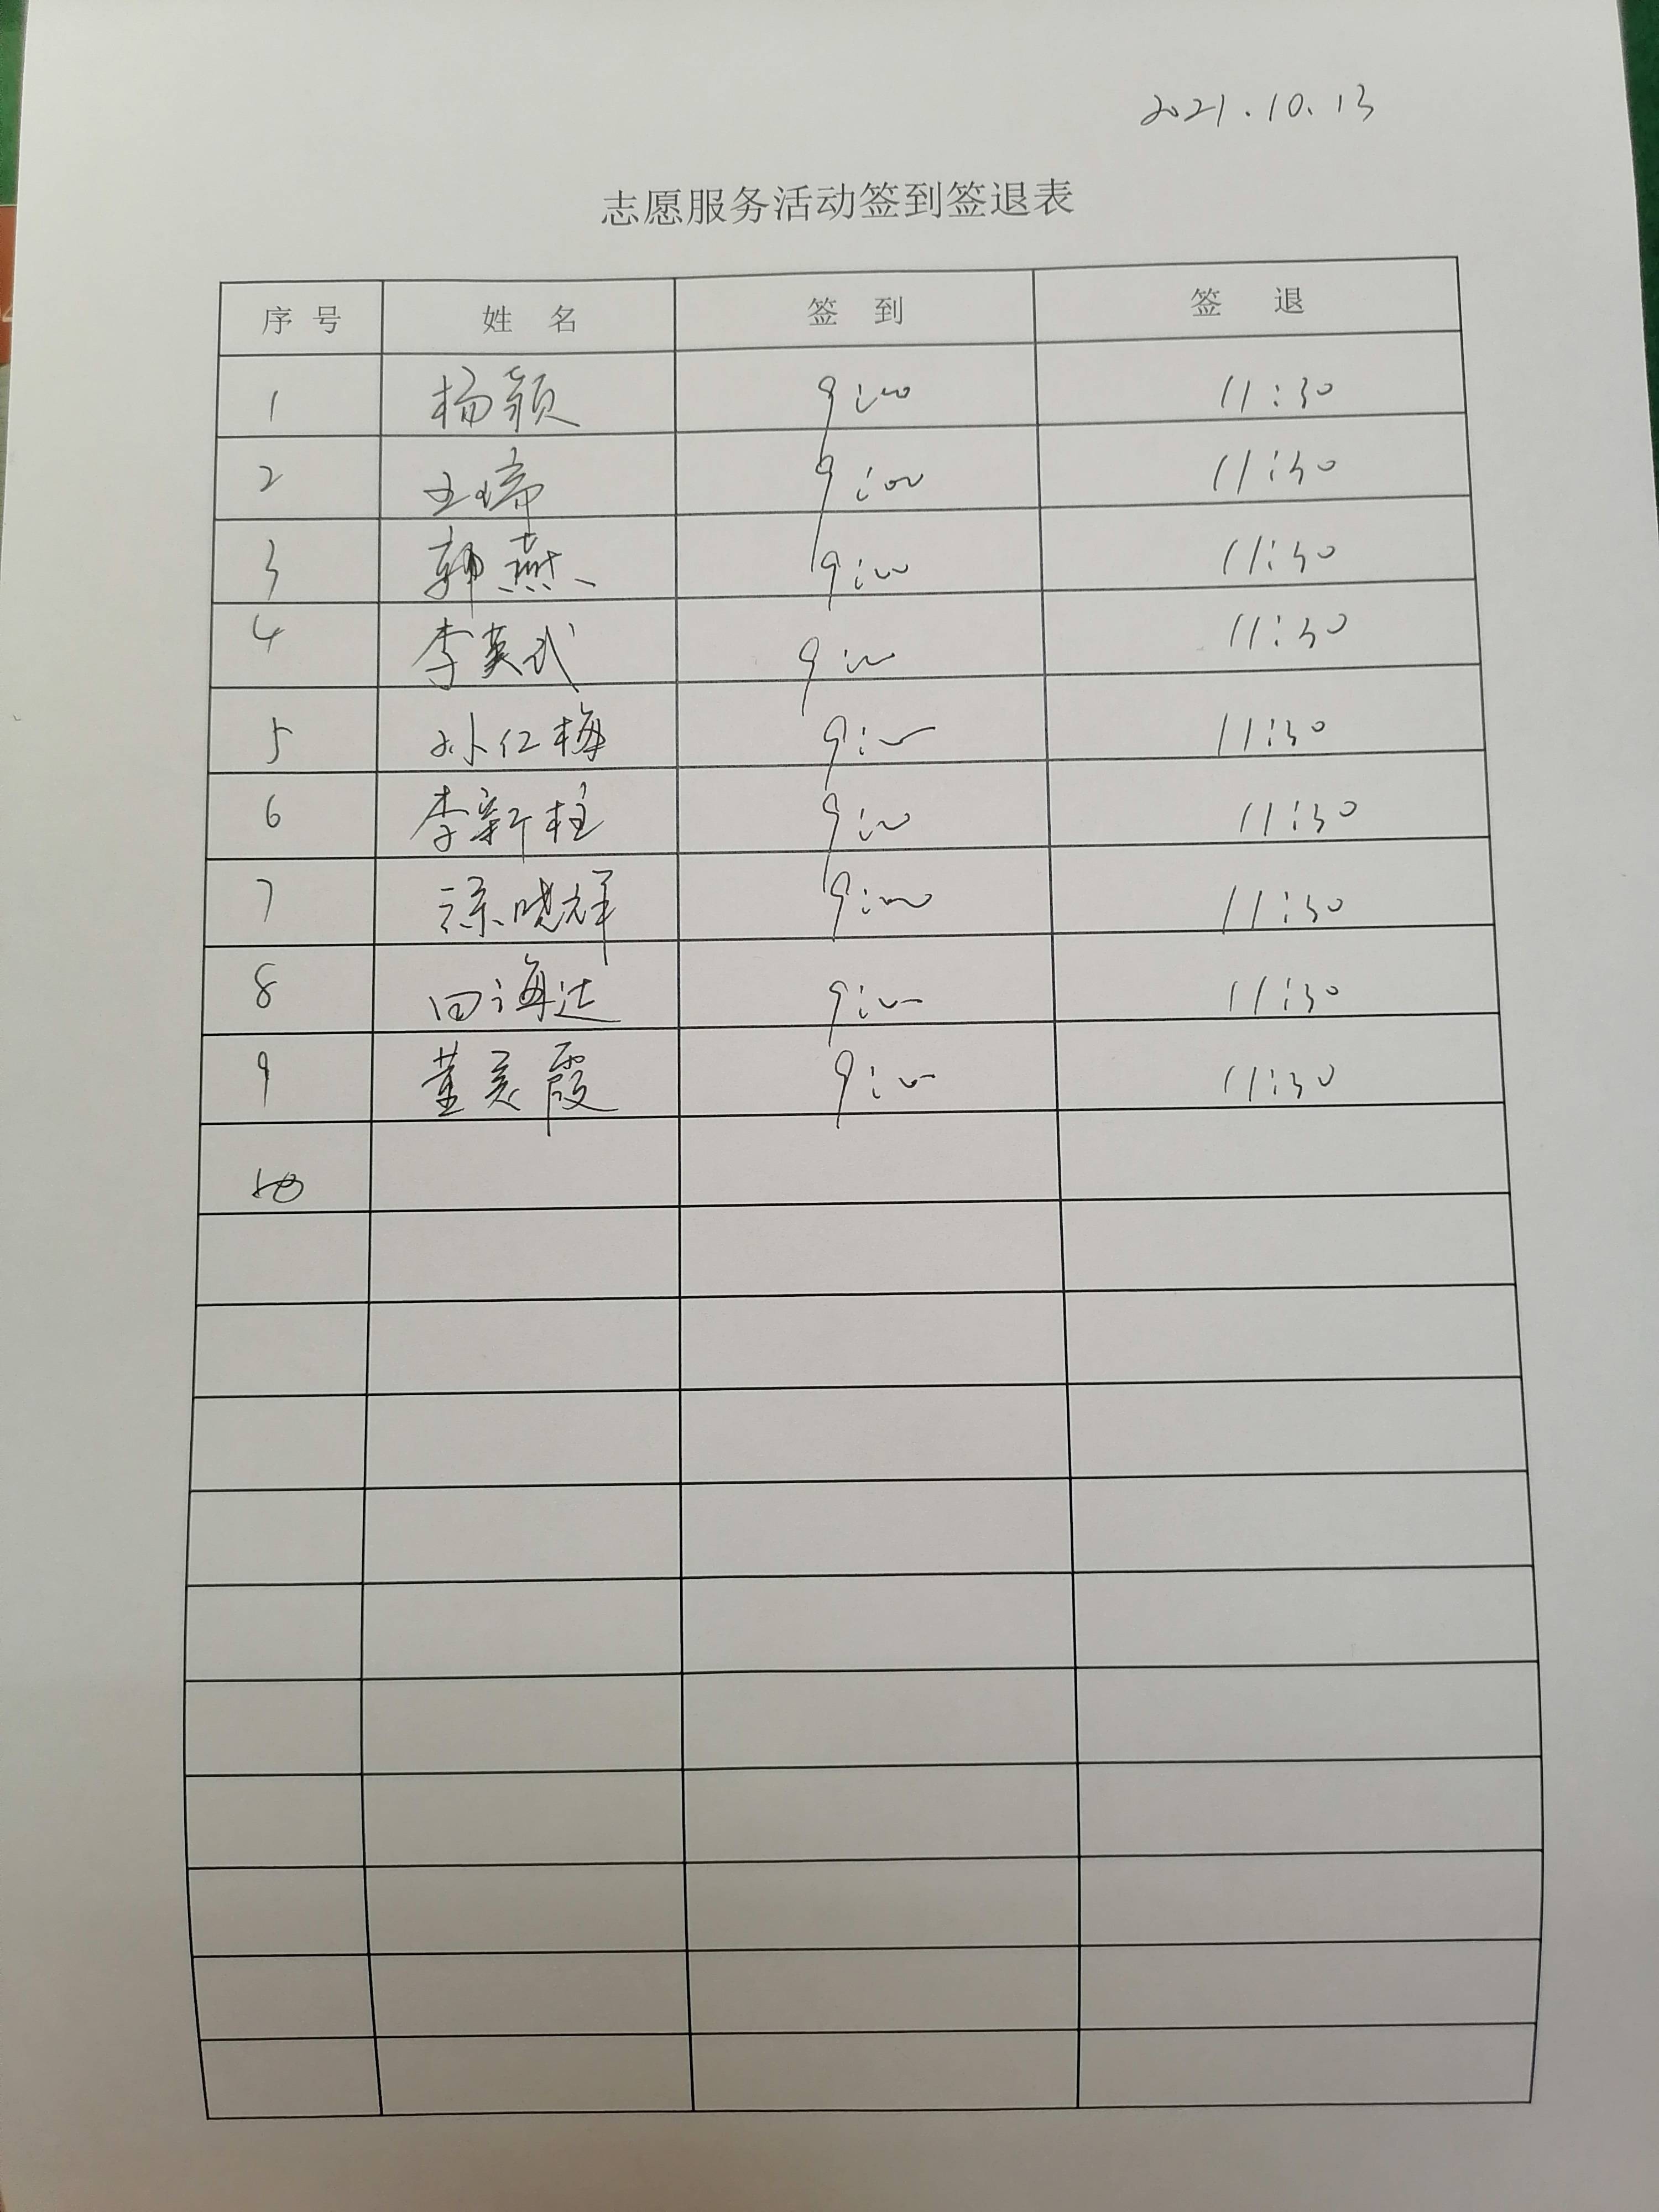 2021.10.13
志愿服务活动签到签退表
序号 姓名 签到 签退
1 杨颖 9:00 11:30
2 王瑞 9:00 11:30
3 韩燕 9:00 11:30
4 李英武 9:00 11:30
5 孙仁梅 9:00 11:30
6 李新柱 9:00 11:30
7 徐晓辉 9:00 11:30
8 田海达 9:00 11:30
9 董美霞 9:00 11:30